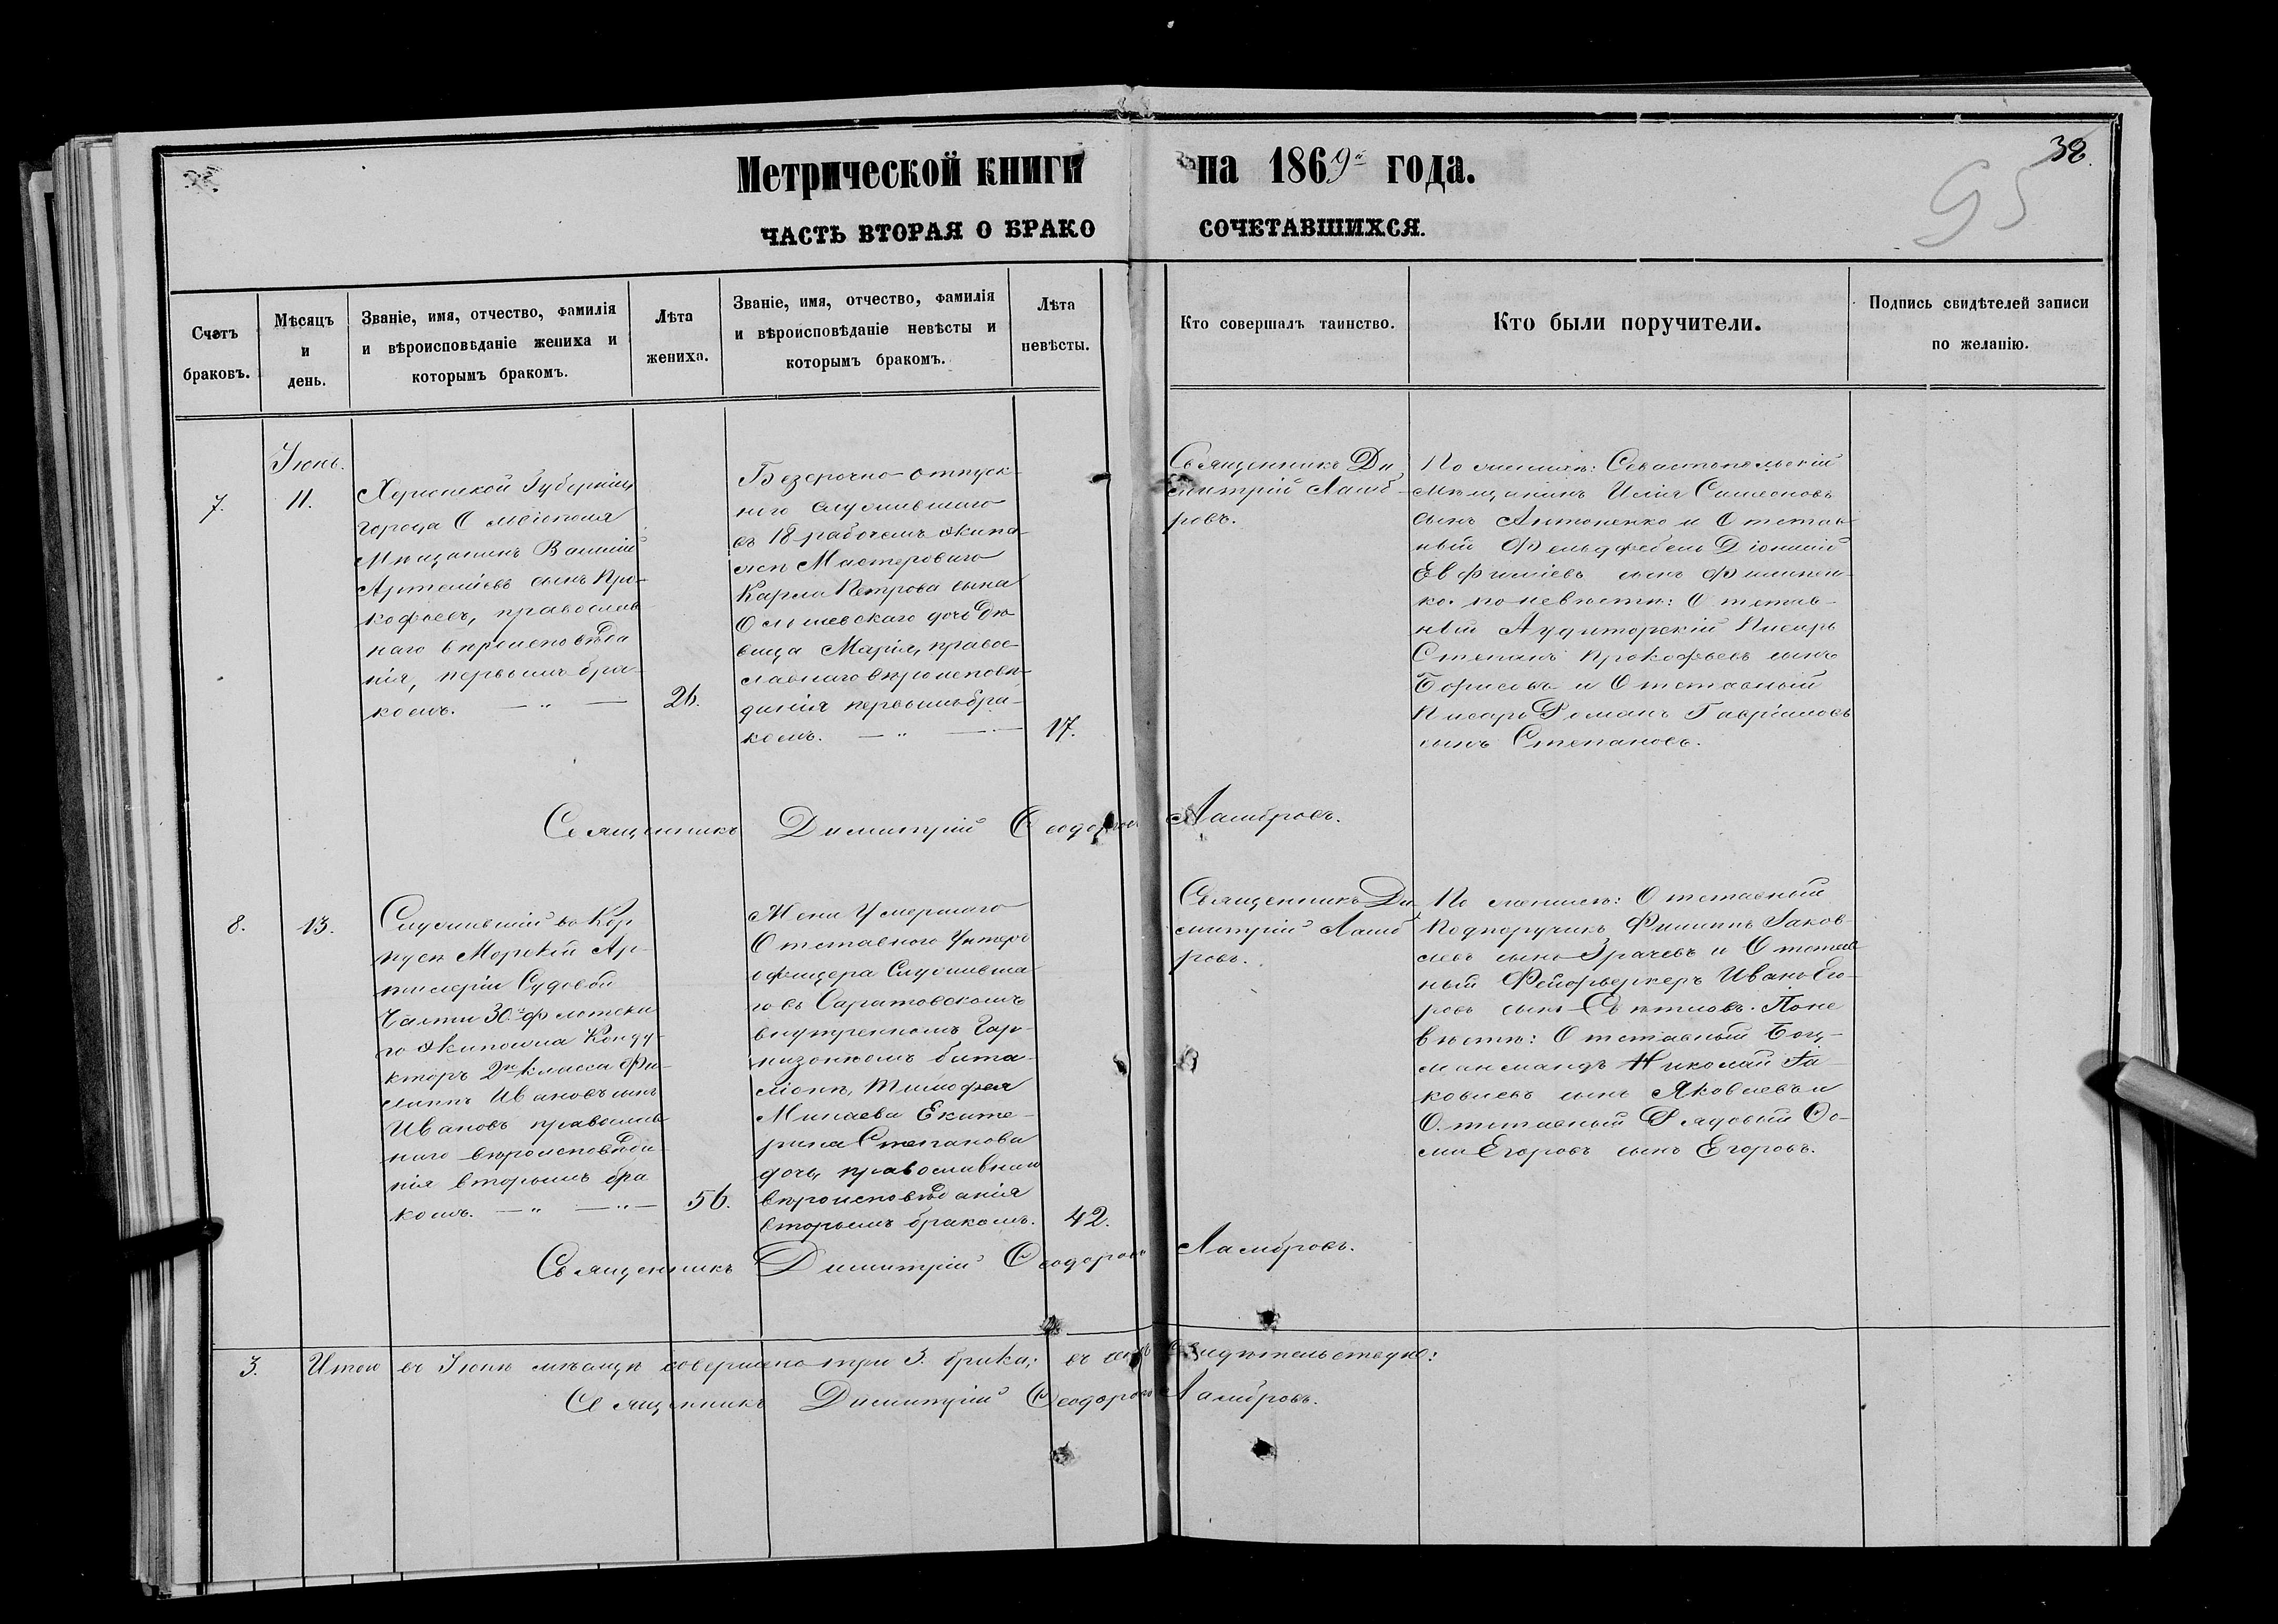 Метрической книги на 1869го года.
38.
95
ЧАСТЬ ВТОРАЯ О БРАКОСОЧЕТАВШИХСЯ.
Счетъ браковъ.
Мѣсяцъ и день.
Званіе, имя, отчество, фамилія
и вѣроисповѣданіе жениха и
которымъ бракомъ.
Лѣта жениха.
Званіе, имя, отчество, фамилія
и вѣроисповѣданіе невѣсты и
которымъ бракомъ.
Лѣта невѣсты.
Кто совершалъ таинство.
Кто были поручители.
Подпись свидѣтелей записи
по желанію.
7.
Іюнь.
11.
Херсонской Губерніи
города
Мѣщанинъ Василій
Артеміевъ сынъ Про-
кофьевъ, православ-
наго вѣроисповѣда
нія, первымъ бра-
комъ. — „ —
26.
Безсрочно-отпуск-
наго служившаго
въ 18 рабочемъ экипа-
жѣ Мастероваго
Карла Петрова сына
Ольшевскаго дочь дѣ-
вица Марія, правос-
лавнаго вѣроисповѣ-
данія первымъ бра-
комъ. — „ —
17.
Священникъ Ди
митрій Ламб-
ровъ.
По женихѣ: Севастопольскій
мѣщанинъ Илія Симеоновъ
сынъ Антоненко и Отстав-
ный Фельдфебель Діонисій
Евфиміевъ сынъ Филипен-
ко. по невѣстѣ: Отстав-
ный Аудиторскій Писарь
Степанъ Прокофьевъ сынъ
Борисовъ и Отставный
Писарь Романъ Гавріиловъ
сынъ Степановъ.
Священникъ Димитрій Ѳеодоровъ Ламбровъ.
8.
13.
Служившій въ Кор
пусѣ Морской Ар-
тилеріи Судовой
Части 30го флотска
го Экипажа Конду-
кторъ 2го класса Фи-
липпъ Ивановъ сынъ
Ивановъ православ
наго вѣроисповѣда-
нія вторымъ бра
комъ. — „ — „ —
56.
Жена Умершаго
Отставнаго Унтеръ
офицера Служивша
го въ Саратовскомъ
внутреннемъ Гар-
низонномъ бата-
ліонѣ, Тимофея
Минаева Екате-
рина Степанова
дочь, православнаго
вѣроисповѣданія
вторымъ бракомъ.
42.
Священникъ Ди
митрій Ламб
ровъ.
По женихѣ: Отставный
Подпоручикъ Филиппъ Іаков-
левъ сынъ Грачевъ и Отстав
ный Фейерверкеръ Иванъ Его-
ровъ сынъ По не
вѣстѣ: Отставный Боц-
манматъ Николай Іа-
ковлевъ сынъ Яковлевъ и
Отставный Рядовый Ѳо-
ма Егоровъ сынъ Егоровъ.
Священникъ Димитрій Ѳеодоровъ Ламбровъ.
3. Итого въ Іюнѣ мѣсяцѣ совершено три 3. брака; въ чемъ свидѣтельствую:
Священникъ Димитрій Ѳеодоровъ Ламбровъ.